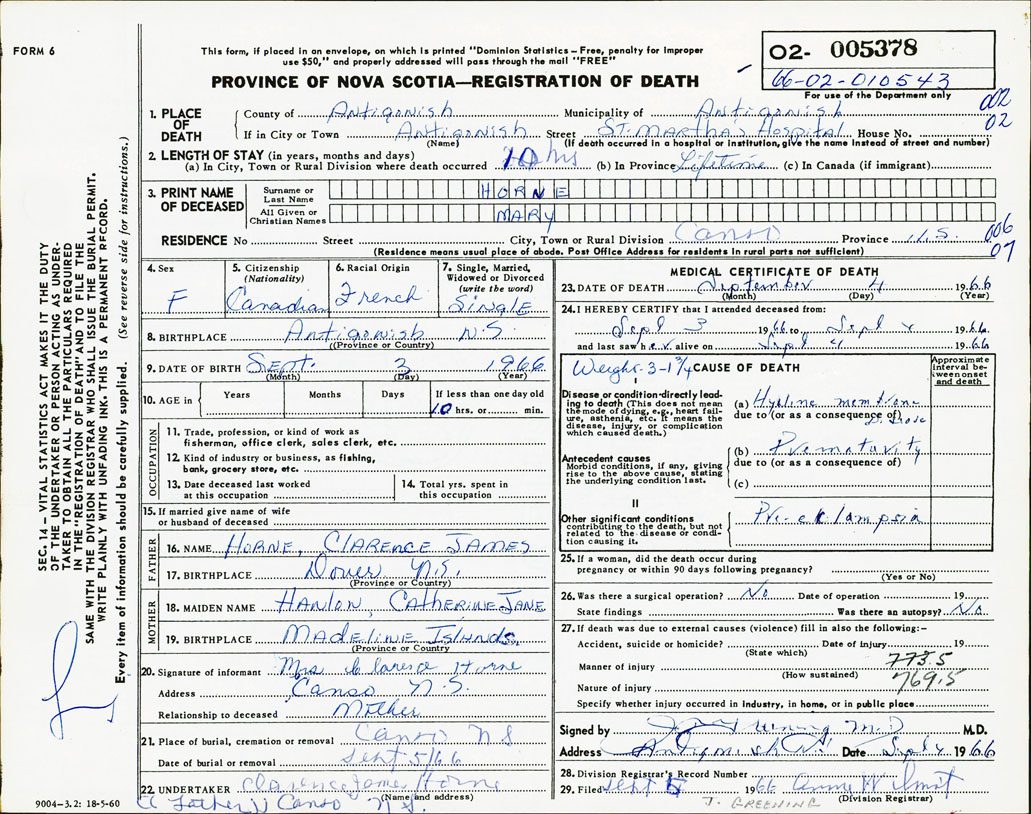 FORM 6
This form, if placed in an envelope, on which is printed "Dominion Statistics – Free, penalty for improper
use $50," and properly addressed will pass through the mail "FREE"
PROVINCE OF NOVA SCOTIA—REGISTRATION OF DEATH
O2- 005378
66-02-010543
For use of the Department only
002
02
1. PLACE OF DEATH
County of Antigonish Municipality of Antigonish
If in City or Town Antigonish Street St. Martha's Hospital House No.
(Name) (If death occurred in a hospital or institution, give the name instead of street and number)
2. LENGTH OF STAY (in years, months and days)
(a) In City, Town or Rural Division where death occurred 10 hrs (b) In Province Lifetime (c) In Canada (if immigrant)
3. PRINT NAME OF DECEASED
Surname or Last Name HORNE
All Given or Christian Names MARY
RESIDENCE No Street City, Town or Rural Division Canso Province N.S.
006
07
(Residence means usual place of abode. Post Office Address for residents in rural parts not sufficient)
4. Sex F
5. Citizenship (Nationality) Canadian
6. Racial Origin French
7. Single, Married, Widowed or Divorced (write the word) SINGLE
8. BIRTHPLACE Antigonish N.S.
(Province or Country)
9. DATE OF BIRTH Sept. 3 1966
(Month) (Day) (Year)
10. AGE in Years Months Days If less than one day old
10 hrs. or min.
OCCUPATION
11. Trade, profession, or kind of work as
fisherman, office clerk, sales clerk, etc.
12. Kind of industry or business, as fishing,
bank, grocery store, etc.
13. Date deceased last worked
at this occupation
14. Total yrs. spent in
this occupation
15. If married give name of wife
or husband of deceased
FATHER
16. NAME HORNE, CLARENCE JAMES
17. BIRTHPLACE Dover N.S.
(Province or Country)
MOTHER
18. MAIDEN NAME HANLON, CATHERINE JANE
19. BIRTHPLACE MADELINE ISLANDS
(Province or Country)
20. Signature of informant Mrs Clarence Horne
Address Canso N.S.
Relationship to deceased Mother
21. Place of burial, cremation or removal Canso NS
Date of burial or removal Sept 5/66
22. UNDERTAKER Clarence James Horne
(Name and address)
(Father) Canso N.S.
9004–3.2: 18-5-60
MEDICAL CERTIFICATE OF DEATH
23. DATE OF DEATH September 4 1966
(Month) (Day) (Year)
24. I HEREBY CERTIFY that I attended deceased from:
Sept 3 1966 to Sept 4 1966
and last saw her alive on Sept 4 1966
Weight-3-1 3/4 CAUSE OF DEATH
Approximate interval between onset and death
I
Disease or condition directly leading to death (This does not mean the mode of dying, e.g., heart failure, asthenia, etc. It means the disease, injury, or complication which caused death.)
(a) Hyaline membrane
due to (or as a consequence of)
Antecedent causes
Morbid conditions, if any, giving rise to the above cause, stating the underlying condition last.
(b) Prematurity
due to (or as a consequence of)
(c)
II
Other significant conditions
contributing to the death, but not related to the disease or condition causing it.
Pre-eclampsia
25. If a woman, did the death occur during
pregnancy or within 90 days following pregnancy?
(Yes or No)
26. Was there a surgical operation? No Date of operation 19
State findings Was there an autopsy? No
27. If death was due to external causes (violence) fill in also the following:-
Accident, suicide or homicide? Date of injury 19
(State which)
773.5
Manner of injury
(How sustained)
769.5
Nature of injury
Specify whether injury occurred in industry, in home, or in public place
Signed by M.D. M.D.
Address Antigonish Date Sept 4 1966
28. Division Registrar's Record Number
29. Filed Sept 5 1966
(Division Registrar)
J. GREENING
SEC. 14 – VITAL STATISTICS ACT MAKES IT THE DUTY
OF THE UNDERTAKER OR PERSON ACTING AS UNDER-
TAKER TO OBTAIN ALL THE PARTICULARS REQUIRED
IN THE "REGISTRATION OF DEATH" AND TO FILE THE
SAME WITH THE DIVISION REGISTRAR WHO SHALL ISSUE THE BURIAL PERMIT.
WRITE PLAINLY WITH UNFADING INK. THIS IS A PERMANENT RECORD.
Every item of information should be carefully supplied. (See reverse side for instructions.)